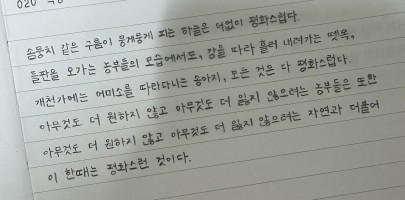 020
솜뭉치 같은 구름이 뭉게뭉게 피는 하늘은 더없이 평화스럽다.
들판을 오가는 농부들의 모습에서도, 강을 따라 흘러 내려가는 뗏목,
개천가에는 어미소를 따라다니는 송아지, 모든 것은 다 평화스럽다.
아무것도 더 원하지 않고 아무것도 더 잃지 않으려는 농부들은 또한
아무것도 더 원하지 않고 아무것도 더 잃지 않으려는 자연과 더불어
이 한때는 평화스런 것이다.